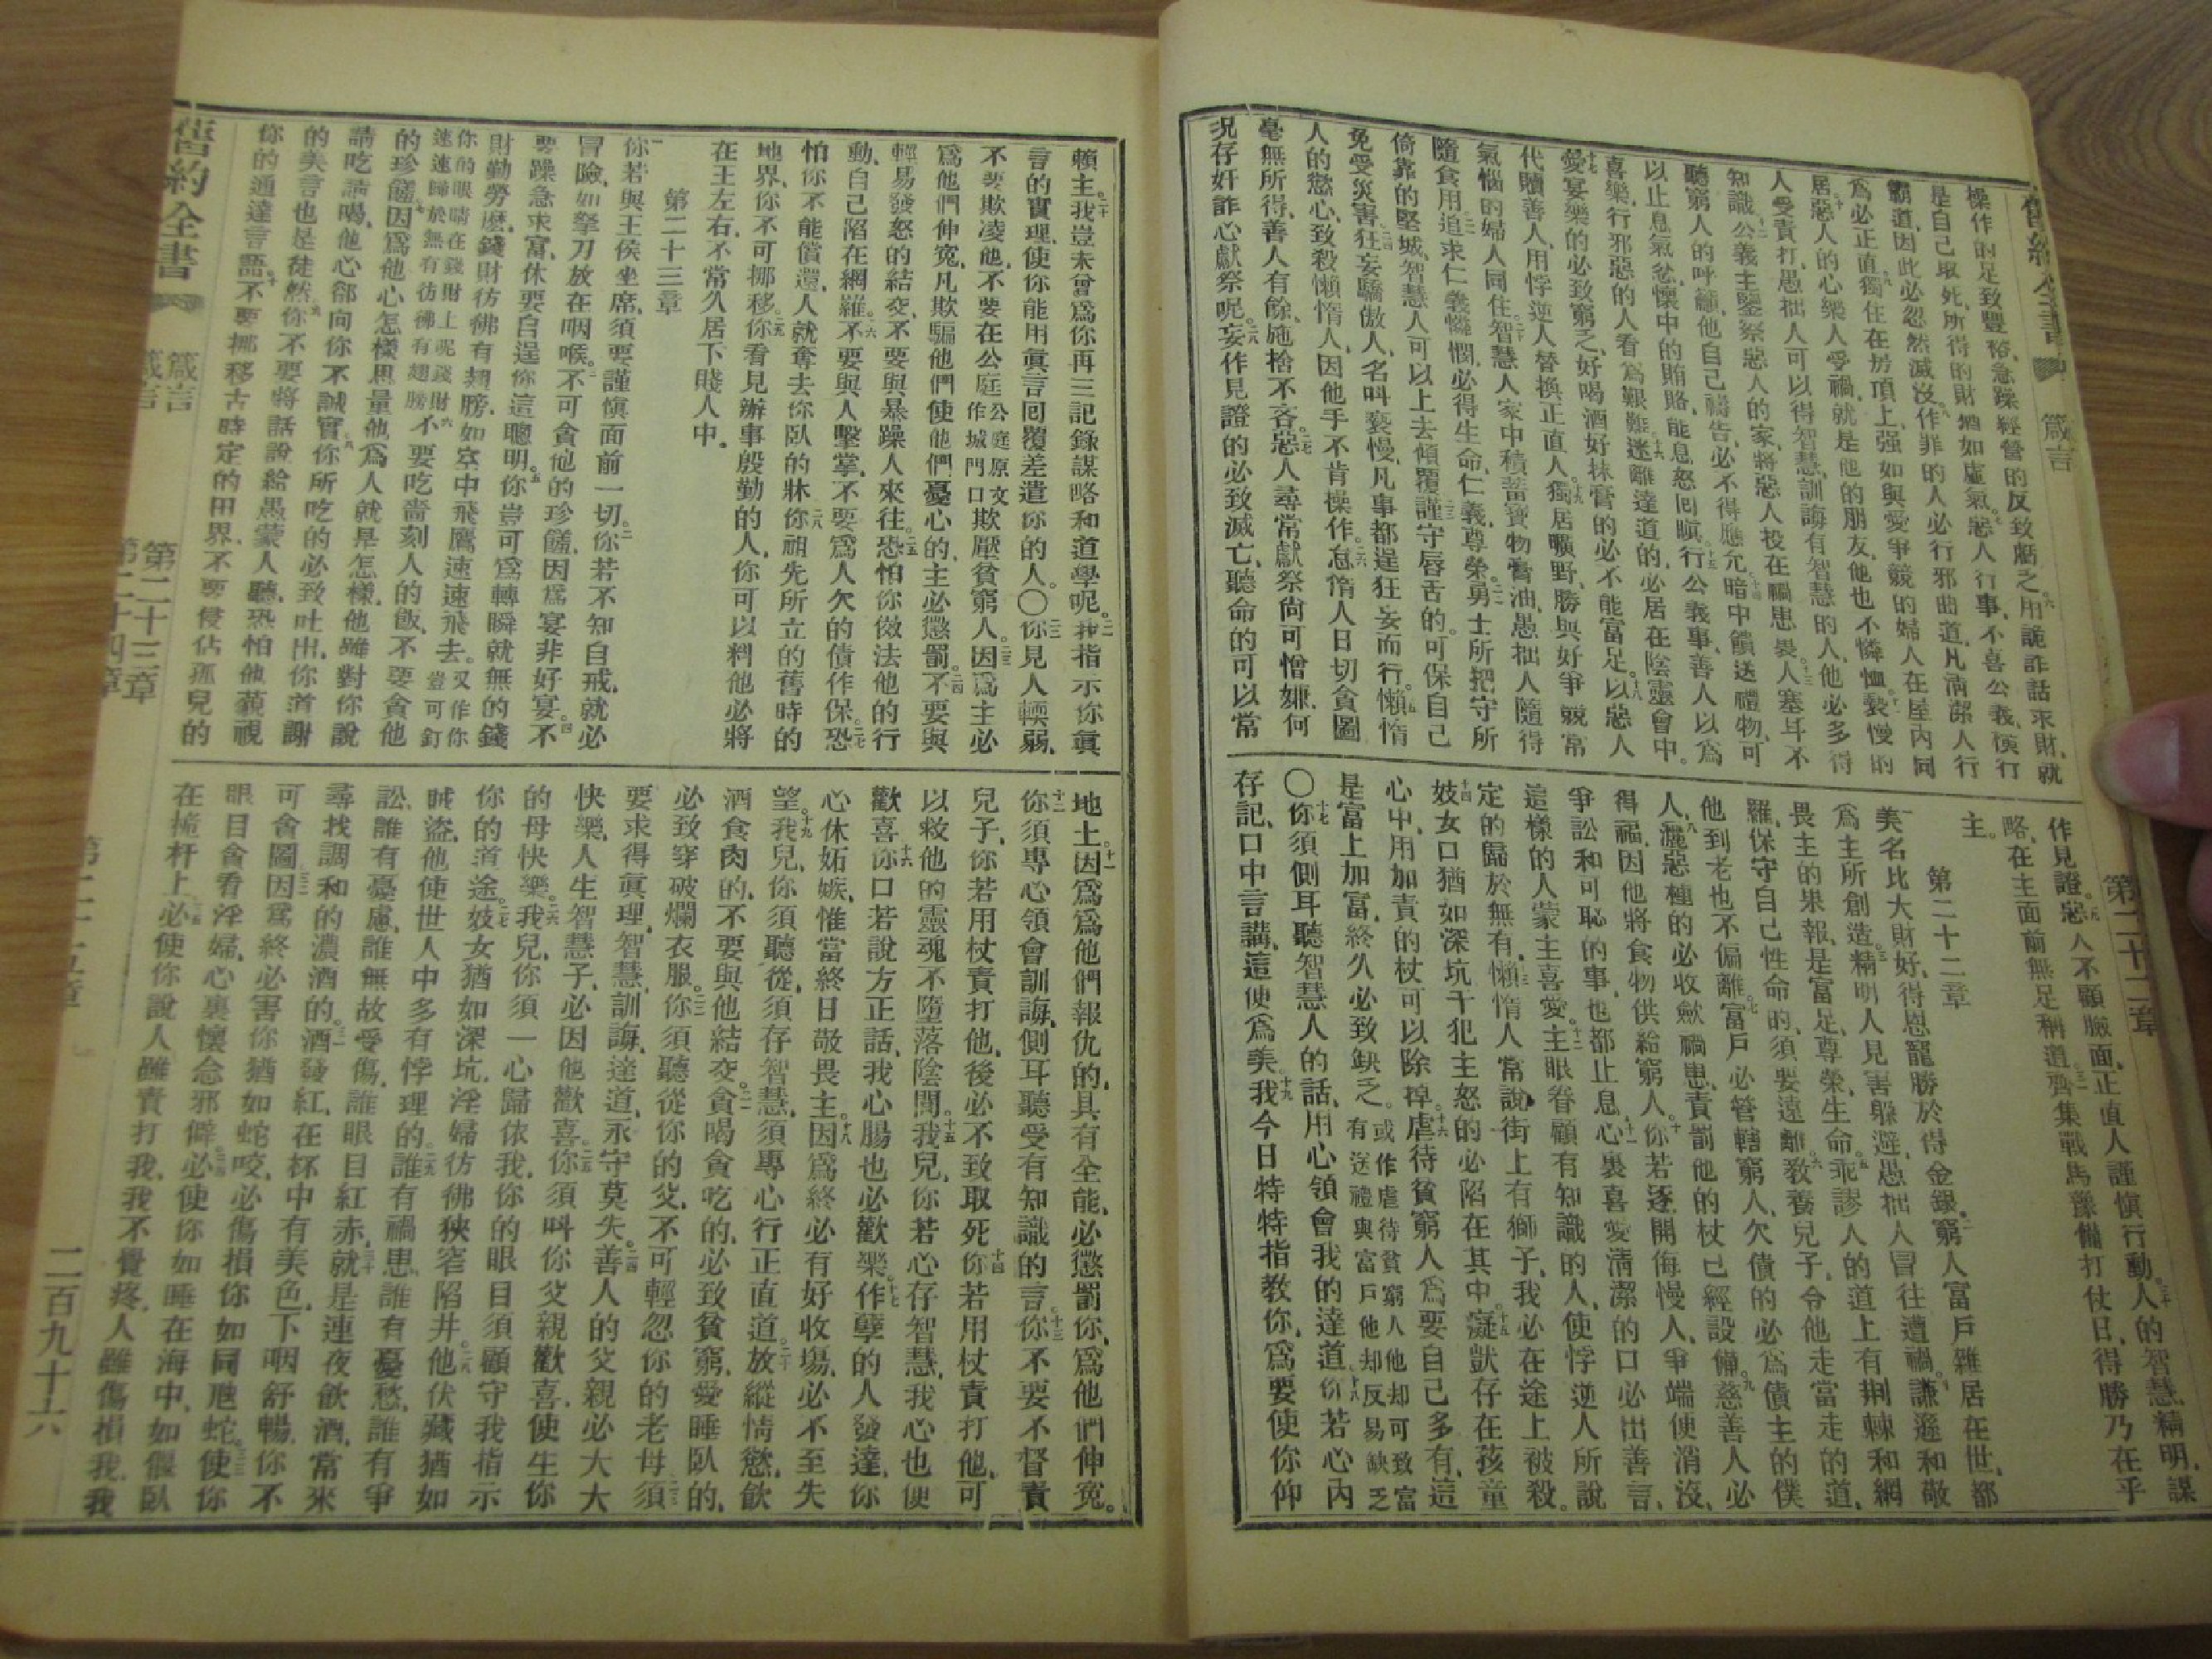 箴言
第二十二章
操作的足致豐裕、急躁經營的反致虧乏。六用詭詐話求財、就
是自己取死、所得的財猶如虛氣。七惡人行事、不喜公義、橫行
霸道、因此必忽然滅沒。八作罪的人必行邪曲道、凡淸潔人行
爲必正直。九獨住在房頂上、强如與愛爭競的婦人在屋內同
居。十惡人的心樂人受禍、就是他的朋友、他也不憐恤。十一褻慢的
人受責打、愚拙人可以得智慧、訓誨有智慧的人、他必多得
知識。十二公義主鑒察惡人的家、將惡人投在禍患裏。十三人塞耳不
聽窮人的呼籲、他自己禱告、必不得應允。十四暗中饋送禮物、可
以止息氣忿、懷中的賄賂、能息怒囘瞋。十五行公義事、善人以爲
喜樂、行邪惡的人看爲艱難。十六迷離達道的、必居在陰靈會中。
十七愛宴樂的必致窮乏、好喝酒好抹膏的必不能富足。十八以惡人
代贖善人、用悖逆人替換正直人。十九獨居曠野、勝與好爭競常
氣惱的婦人同住。二十智慧人家中積蓄寶物膏油、愚拙人隨得
隨食用。二一追求仁義憐憫、必得生命、仁義、尊榮。二二勇士所把守所
倚靠的堅城、智慧人可以上去傾覆。二三謹守唇舌的、可保自己
免受災害。二四狂妄驕傲人、名叫褻慢、凡事都逞狂妄而行。二五懶惰
人的慾心、致殺懶惰人、因他手不肯操作。二六怠惰人日切貪圖
毫無所得、善人有餘、施捨不吝。二七惡人尋常獻祭尙可憎嫌、何
況存奸詐心獻祭呢。二八妄作見證的必致滅亡、聽命的可以常
作見證。二九惡人不顧臉面、正直人謹愼行動。三十人的智慧、精明、謀
略、在主面前無足稱道。三一齊集戰馬豫備打仗日、得勝乃在乎
主。
第二十二章
一美名比大財好、得恩寵勝於得金銀。二窮人富戶雜居在世、都
爲主所創造。三精明人見害躱避、愚拙人冒往遭禍。四謙遜和敬
畏主的果報、是富足、尊榮、生命。五乖謬人的道上有荆棘和網
羅、保守自己性命的、須要遠離。六敎養兒子、令他走當走的道、
他到老也不偏離。七富戶必管轄窮人、欠債的必爲債主的僕
人。八灑惡種的必收歛禍患、責罰他的杖已經設備。九慈善人必
得福、因他將食物供給窮人。十你若逐開侮慢人、爭端便消沒、
爭訟和可恥的事、也都止息。十一心裏喜愛淸潔的口必出善言、
這樣的人蒙主喜愛。十二主眼眷顧有知識的人、使悖逆人所說
定的歸於無有。十三懶惰人常說、街上有獅子、我必在途上被殺。
十四妓女口猶如深坑、干犯主怒的必陷在其中。十五癡獃存在孩童
心中、用加責的杖可以除掉。十六虐待貧窮人爲要自己多有、這
是富上加富、終久必致缺乏。或作虐待貧窮人他却可致富有送禮與富戶他却反易缺乏
〇十七你須側耳、聽智慧人的話、用心領會我的達道。十八你若心內
存記、口中言講、這便爲美。十九我今日特特指教你、爲要使你仰
賴主。二十我豈未曾爲你再三記錄謀略和道學呢。二一我指示你眞
言的實理、使你能用眞言囘覆差遣你的人。〇二二你見人輭弱、
不要欺凌他、不要在公庭公庭原文作城門口欺壓貧窮人、二三因爲主必
爲他們伸寃、凡欺騙他們使他們憂心的、主必懲罰。二四不要與
輕易發怒的結交、不要與暴躁人來往。二五恐怕你傚法他的行
動、自己陷在網羅。二六不要與人擊掌、不要爲人欠的債作保。二七恐
怕你不能償還、人就奪去你臥的牀。二八你祖先所立的舊時的
地界、你不可挪移。二九你看見辦事殷勤的人、你可以料他必將
在王左右、不常久居下賤人中。
第二十三章
一你若與王侯坐席、須要謹愼面前一切。二你若不知自戒、就必
冒險、如拏刀放在咽喉。三不可貪他的珍饈、因爲宴非好宴。四不
要躁急求富、休要自逞你這聰明。五你豈可爲轉瞬就無的錢
財勤勞麽、錢財彷彿有翅膀、如空中飛鷹速速飛去。又作你豈可釘
你的眼睛在錢財上呢錢財速速歸於無有彷彿有翅膀六不要吃嗇刻人的飯、不要貪他
的珍饈。七因爲他心怎樣思量、他爲人就是怎樣、他雖對你說
請吃請喝、他心郤向你不誠實。八你所吃的必致吐出、你道謝
的美言也是徒然。九你不要將話說給愚蒙人聽、恐怕他藐視
你的通達言語。十不要挪移古時定的田界、不要侵佔孤兒的
地土。十一因爲爲他們報仇的、具有全能、必懲罰你、爲他們伸寃。
十二你須專心領會訓誨、側耳聽受有知識的言。十三你不要不督責
兒子、你若用杖責打他、後必不致取死。十四你若用杖責打他、可
以救他的靈魂不墮落陰間。十五我兒、你若心存智慧、我心也便
歡喜。十六你口若說方正話、我心腸也必歡樂。十七作孽的人發達、你
心休妬嫉、惟當終日敬畏主。十八因爲終必有好收塲、必不至失
望。十九我兒、你須聽從、須存智慧、須專心行正直道。二十放縱情慾、飮
酒食肉的、不要與他結交。二一貪喝貪吃的、必致貧窮、愛睡臥的、
必致穿破爛衣服。二二你須聽從你的父、不可輕忽你的老母。二三須
要求得眞理、智慧、訓誨、達道、永守莫失。二四善人的父親必大大
快樂、人生智慧子、必因他歡喜。二五你須叫你父親歡喜、使生你
的母快樂。二六我兒、你須一心歸依我、你的眼目須顧守我指示
你的道途。二七妓女猶如深坑、淫婦彷彿狹窄陷井。二八他伏藏猶如
賊盜、他使世人中多有悖理的。二九誰有禍患、誰有憂愁、誰有爭
訟、誰有憂慮、誰無故受傷、誰眼目紅赤。三十就是連夜飮酒、常來
尋找調和的濃酒的。三一酒發紅、在杯中有美色、下咽舒暢、你不
可貪圖。三二因爲終必害你猶如蛇咬、必傷損你如同虺蛇。三三使你
眼目貪看淫婦、心裏懷念邪僻。三四必使你如睡在海中、如偃臥
在桅杆上。三五必使你說、人雖責打我、我不覺疼、人雖傷損我、我
舊約全書
箴言
第二十三章
箴言
第二十四章
二百九十六